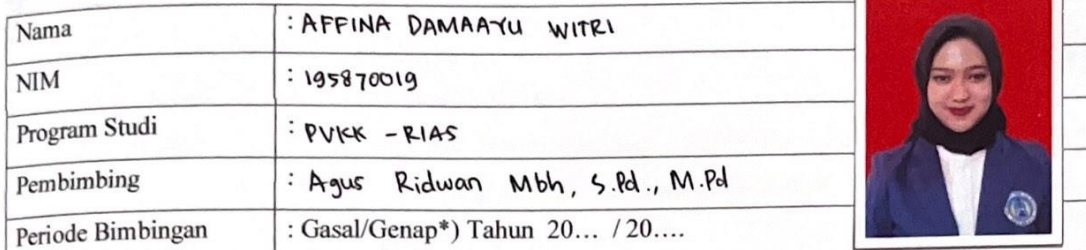 Nama : AFFINA DAMAAYU WITRI
NIM : 195870019
Program Studi : PVKK - RIAS
Pembimbing : Agus Ridwan Mbh, S.Pd., M.Pd
Periode Bimbingan : Gasal/Genap*) Tahun 20... / 20....